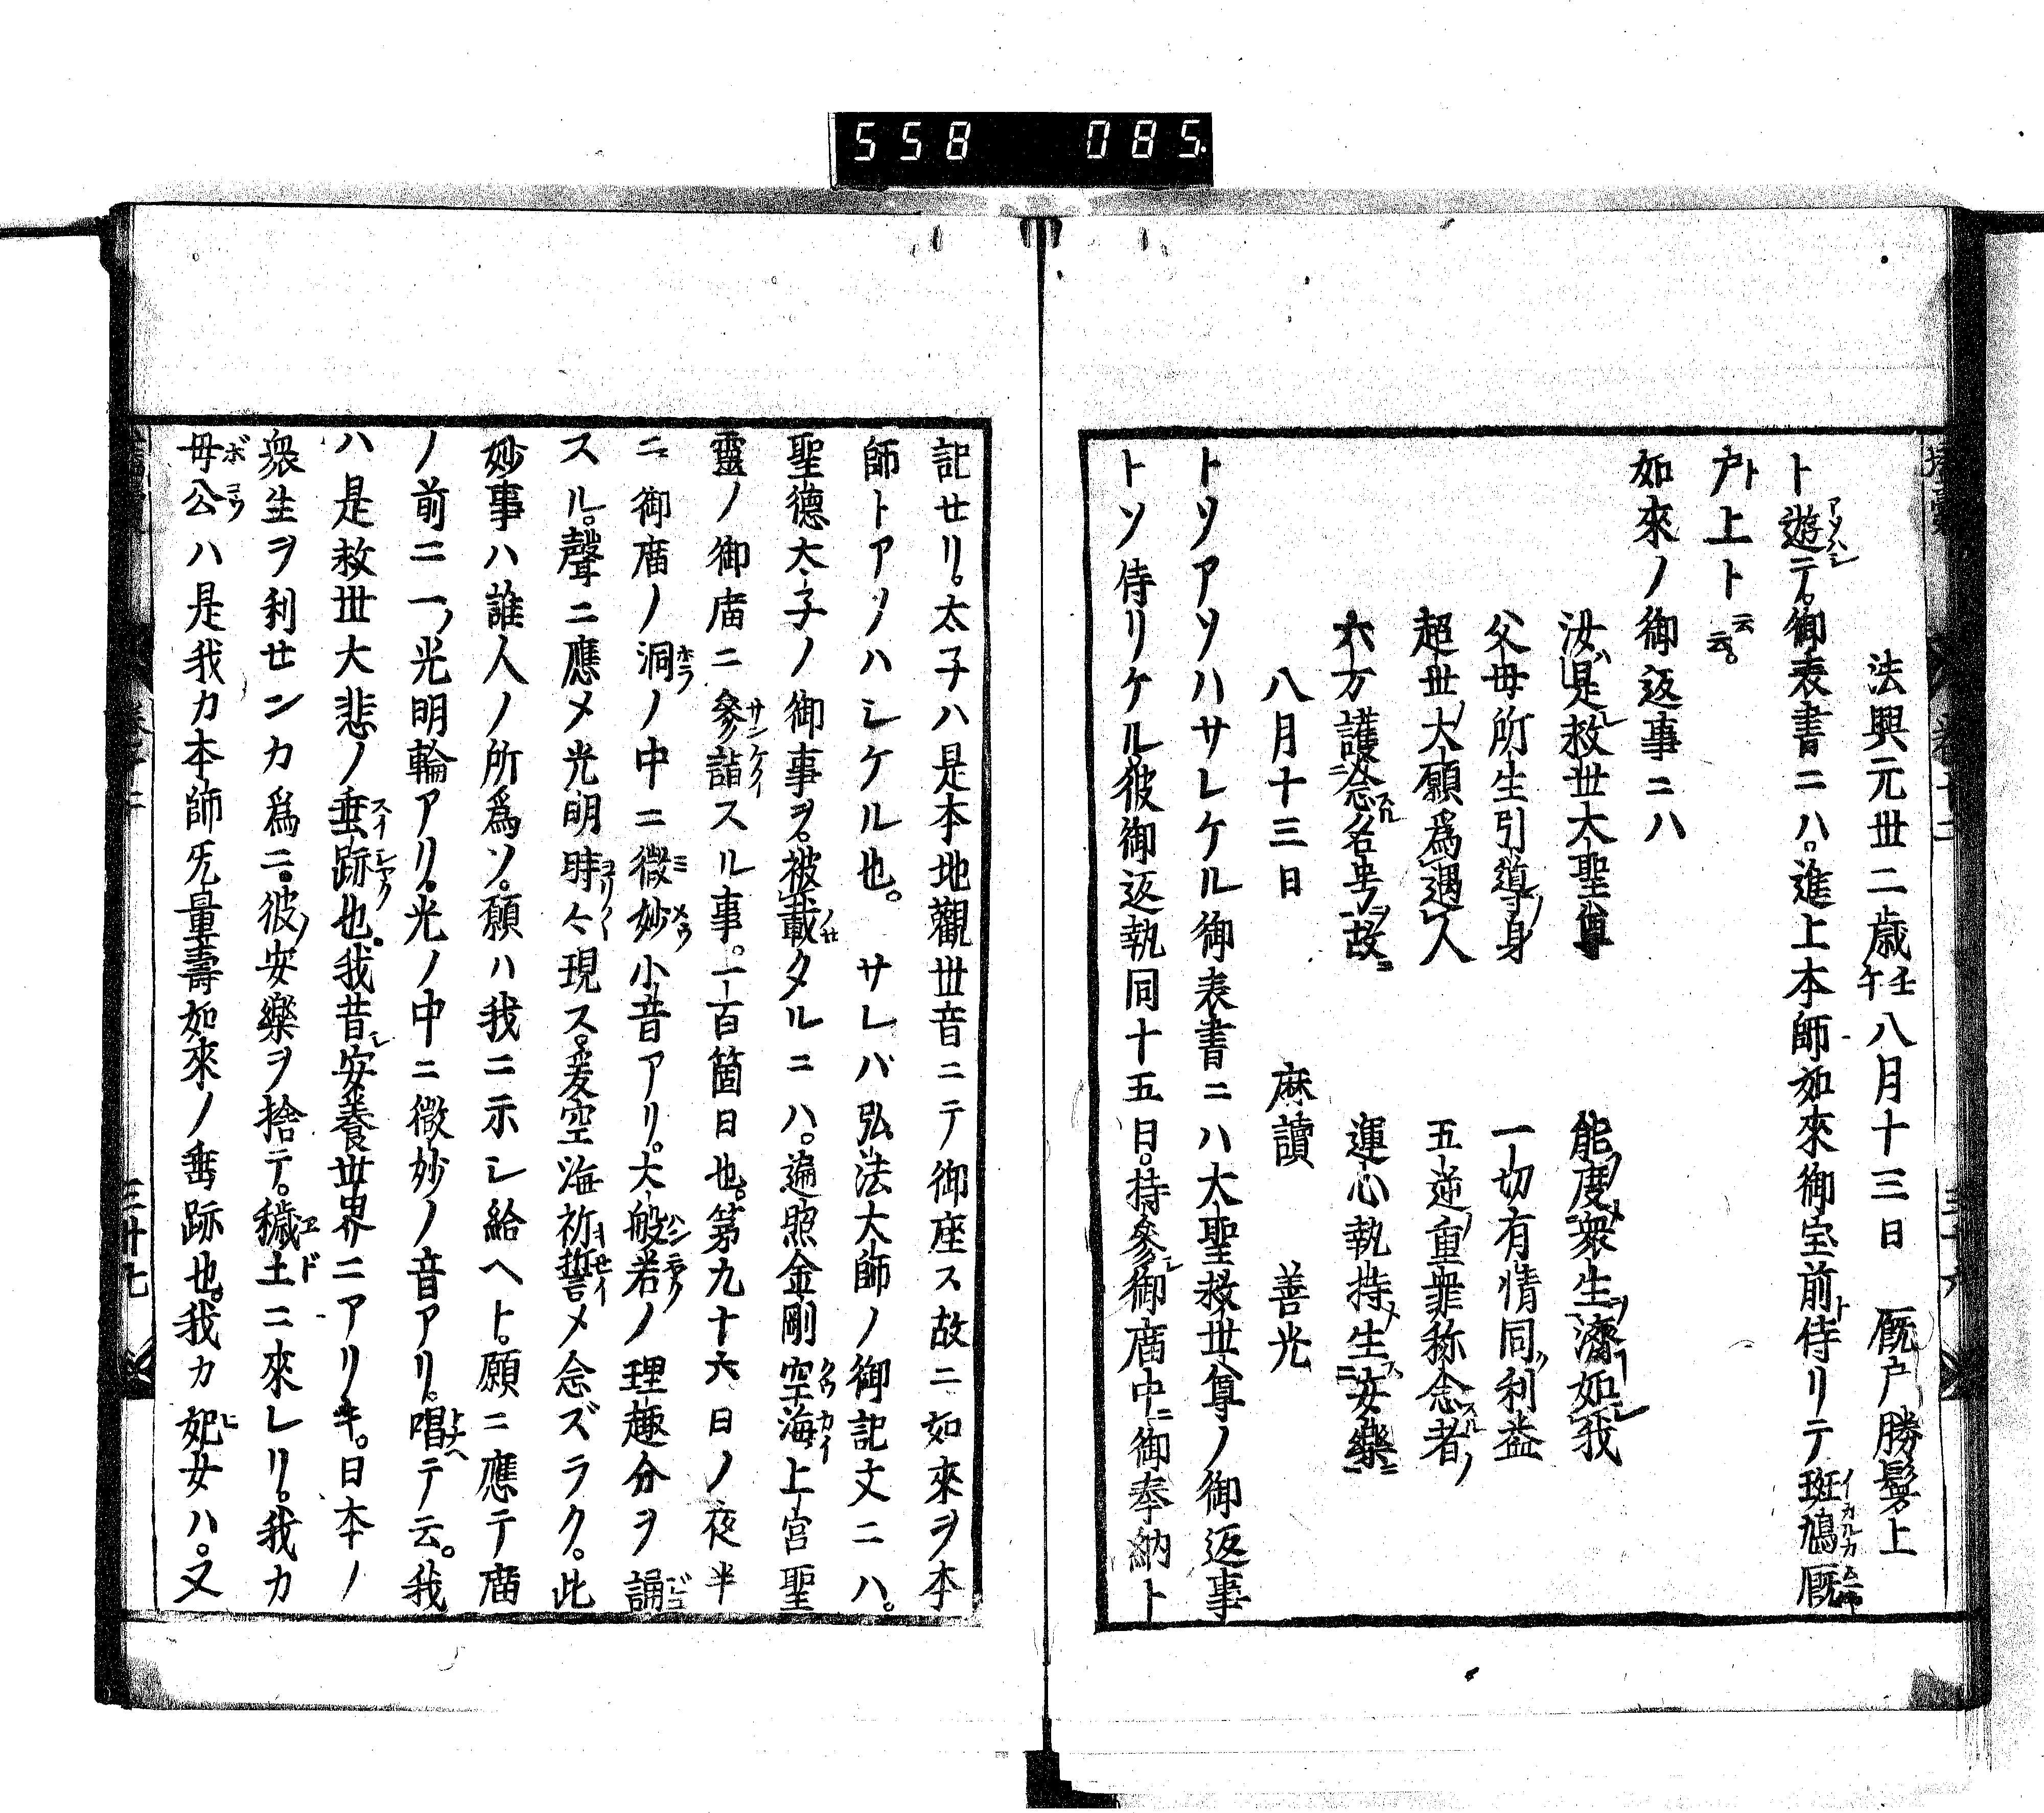 558 085
法興元丗二歳壬午八月十三日 厩戸勝鬘上
ト遊テ。御表書ニハ。進上本師如來御宝前ト侍リテ斑鳩厩
戸上ト云云。
如來ノ御返事ニハ
汝是救丗大聖尊 能度衆生濟如我
父母所生引導身 一切有情同利益
超丗大願爲遇人 五逆重罪称念者
六方護念名号故 運心執持生安樂
八月十三日 麻讀 善光
トソアソハサレケル御表書ニハ大聖救丗尊ノ御返事
トソ侍リケル彼御返執同十五日。持參御庿中ニ御奉納ト
記セリ。太子ハ是本地觀丗音ニテ御座ス故ニ如來ヲ本
師トアソハシケル也。サレバ弘法大師ノ御記文ニハ。
聖德太子ノ御事ヲ。被載タルニハ。遍照金剛空海上宮聖
靈ノ御庿ニ參詣スル事。一百箇日也。第九十六日ノ夜半
ニ御庿ノ洞ノ中ニ微妙小音アリ。大般若ノ理趣分ヲ誦
スル。聲ニ應メ光明時々現ス。爰空海祈誓メ念ズラク。此
妙事ハ誰人ノ所爲ソ。願ハ我ニ示シ給ヘト。願ニ應テ庿
ノ前ニ一光明輪アリ。光ノ中ニ微妙ノ音アリ。唱テ云。我
ハ是救丗大悲ノ垂跡也。我昔安養丗界ニアリキ。日本ノ
衆生ヲ利センカ爲ニ。彼安樂ヲ捨テ。穢土ニ來レリ。我カ
母公ハ是我カ本師无量壽如來ノ垂跡也。我カ妃女ハ。又
三十九